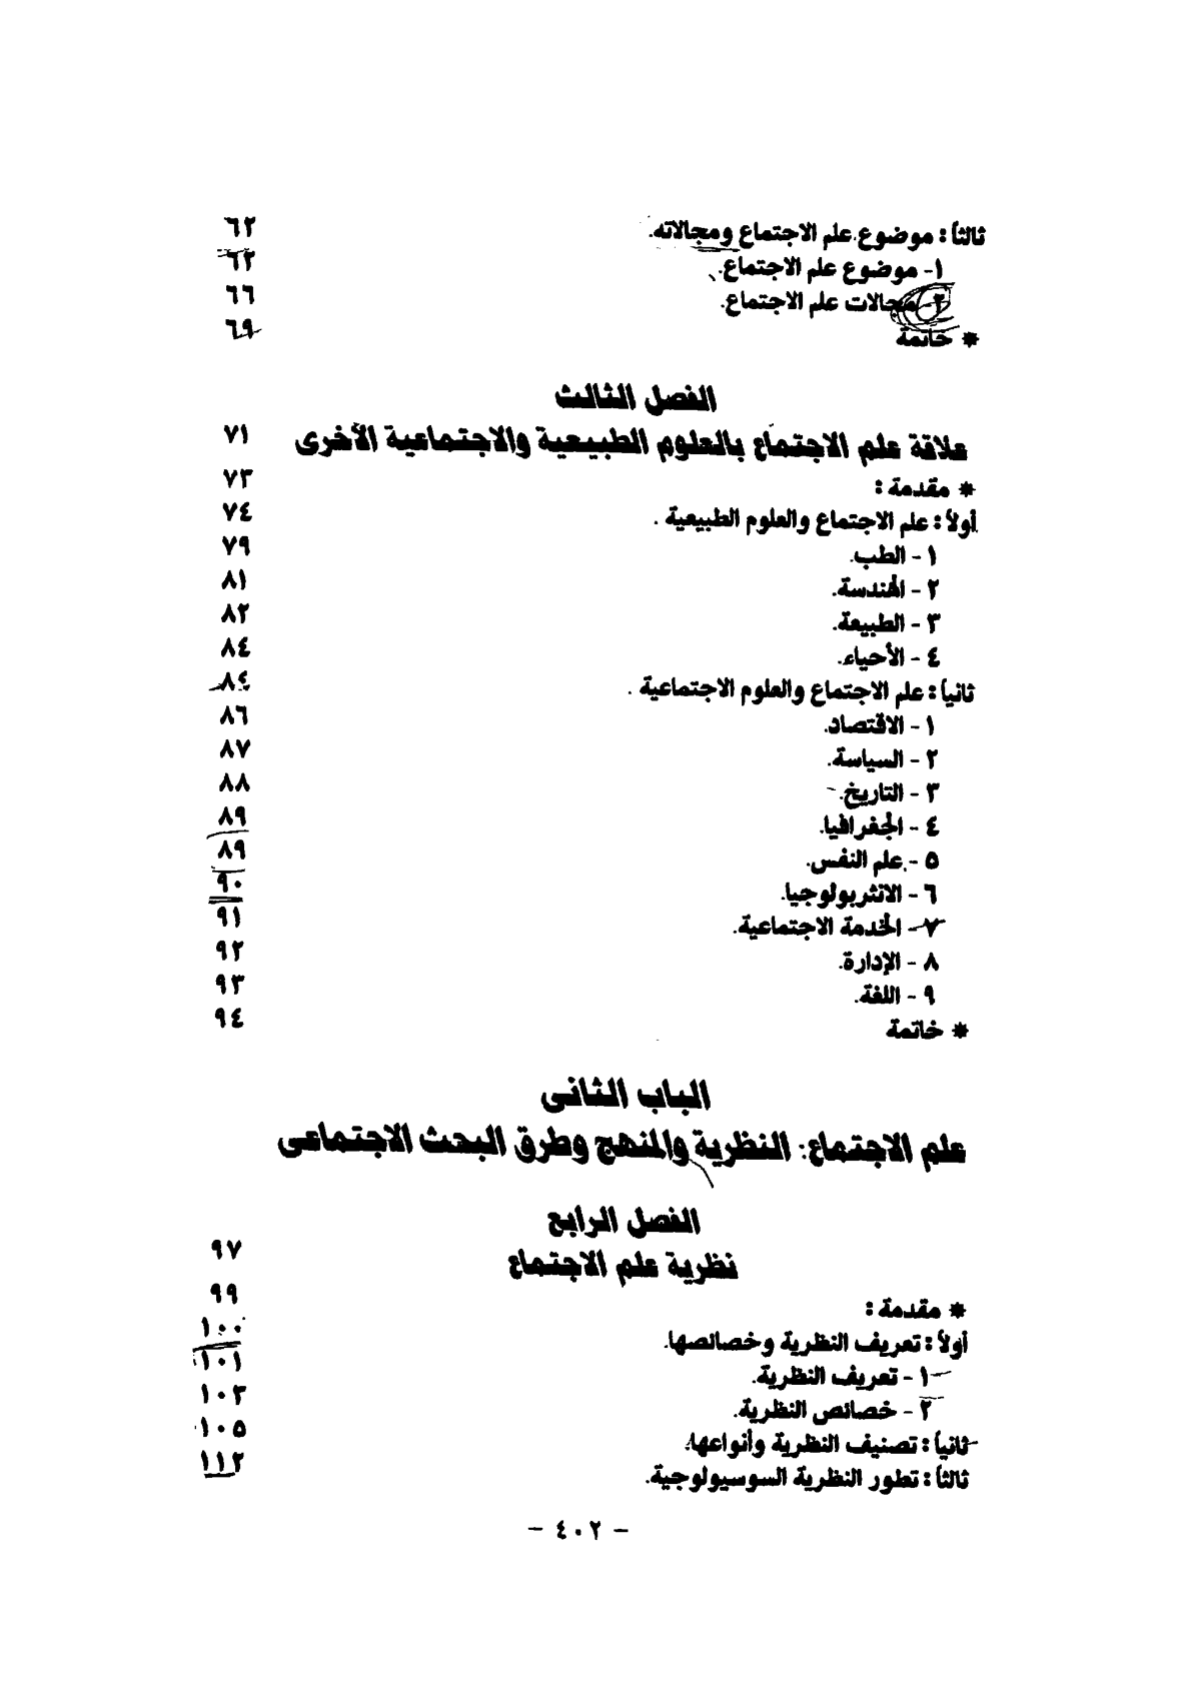 ثالثاً : موضوع علم الاجتماع ومجالاته. ٦٢
١- موضوع علم الاجتماع. ٦٢
٢- مجالات علم الاجتماع. ٦٦
* خاتمة ٦٩
الفصل الثالث
علاقة علم الاجتماع بالعلوم الطبيعية والاجتماعية الأخرى ٧١
* مقدمة : ٧٣
أولاً : علم الاجتماع والعلوم الطبيعية . ٧٤
١ - الطب. ٧٩
٢ - الهندسة. ٨١
٣ - الطبيعة. ٨٢
٤ - الأحياء. ٨٤
ثانياً : علم الاجتماع والعلوم الاجتماعية . ٨٤
١ - الاقتصاد. ٨٦
٢ - السياسة. ٨٧
٣ - التاريخ. ٨٨
٤ - الجغرافيا. ٨٩
٥ - علم النفس. ٨٩
٦ - الانثربولوجيا. ٩٠
٧ - الخدمة الاجتماعية. ٩١
٨ - الإدارة. ٩٢
٩ - اللغة. ٩٣
* خاتمة ٩٤
الباب الثانى
علم الاجتماع: النظرية والمنهج وطرق البحث الاجتماعى
الفصل الرابع
نظرية علم الاجتماع ٩٧
* مقدمة : ٩٩
أولاً : تعريف النظرية وخصائصها. ١٠٠
١ - تعريف النظرية. ١٠١
٢ - خصائص النظرية. ١٠٣
ثانياً : تصنيف النظرية وأنواعها. ١٠٥
ثالثاً : تطور النظرية السوسيولوجية. ١١٢
- ٤٠٢ -